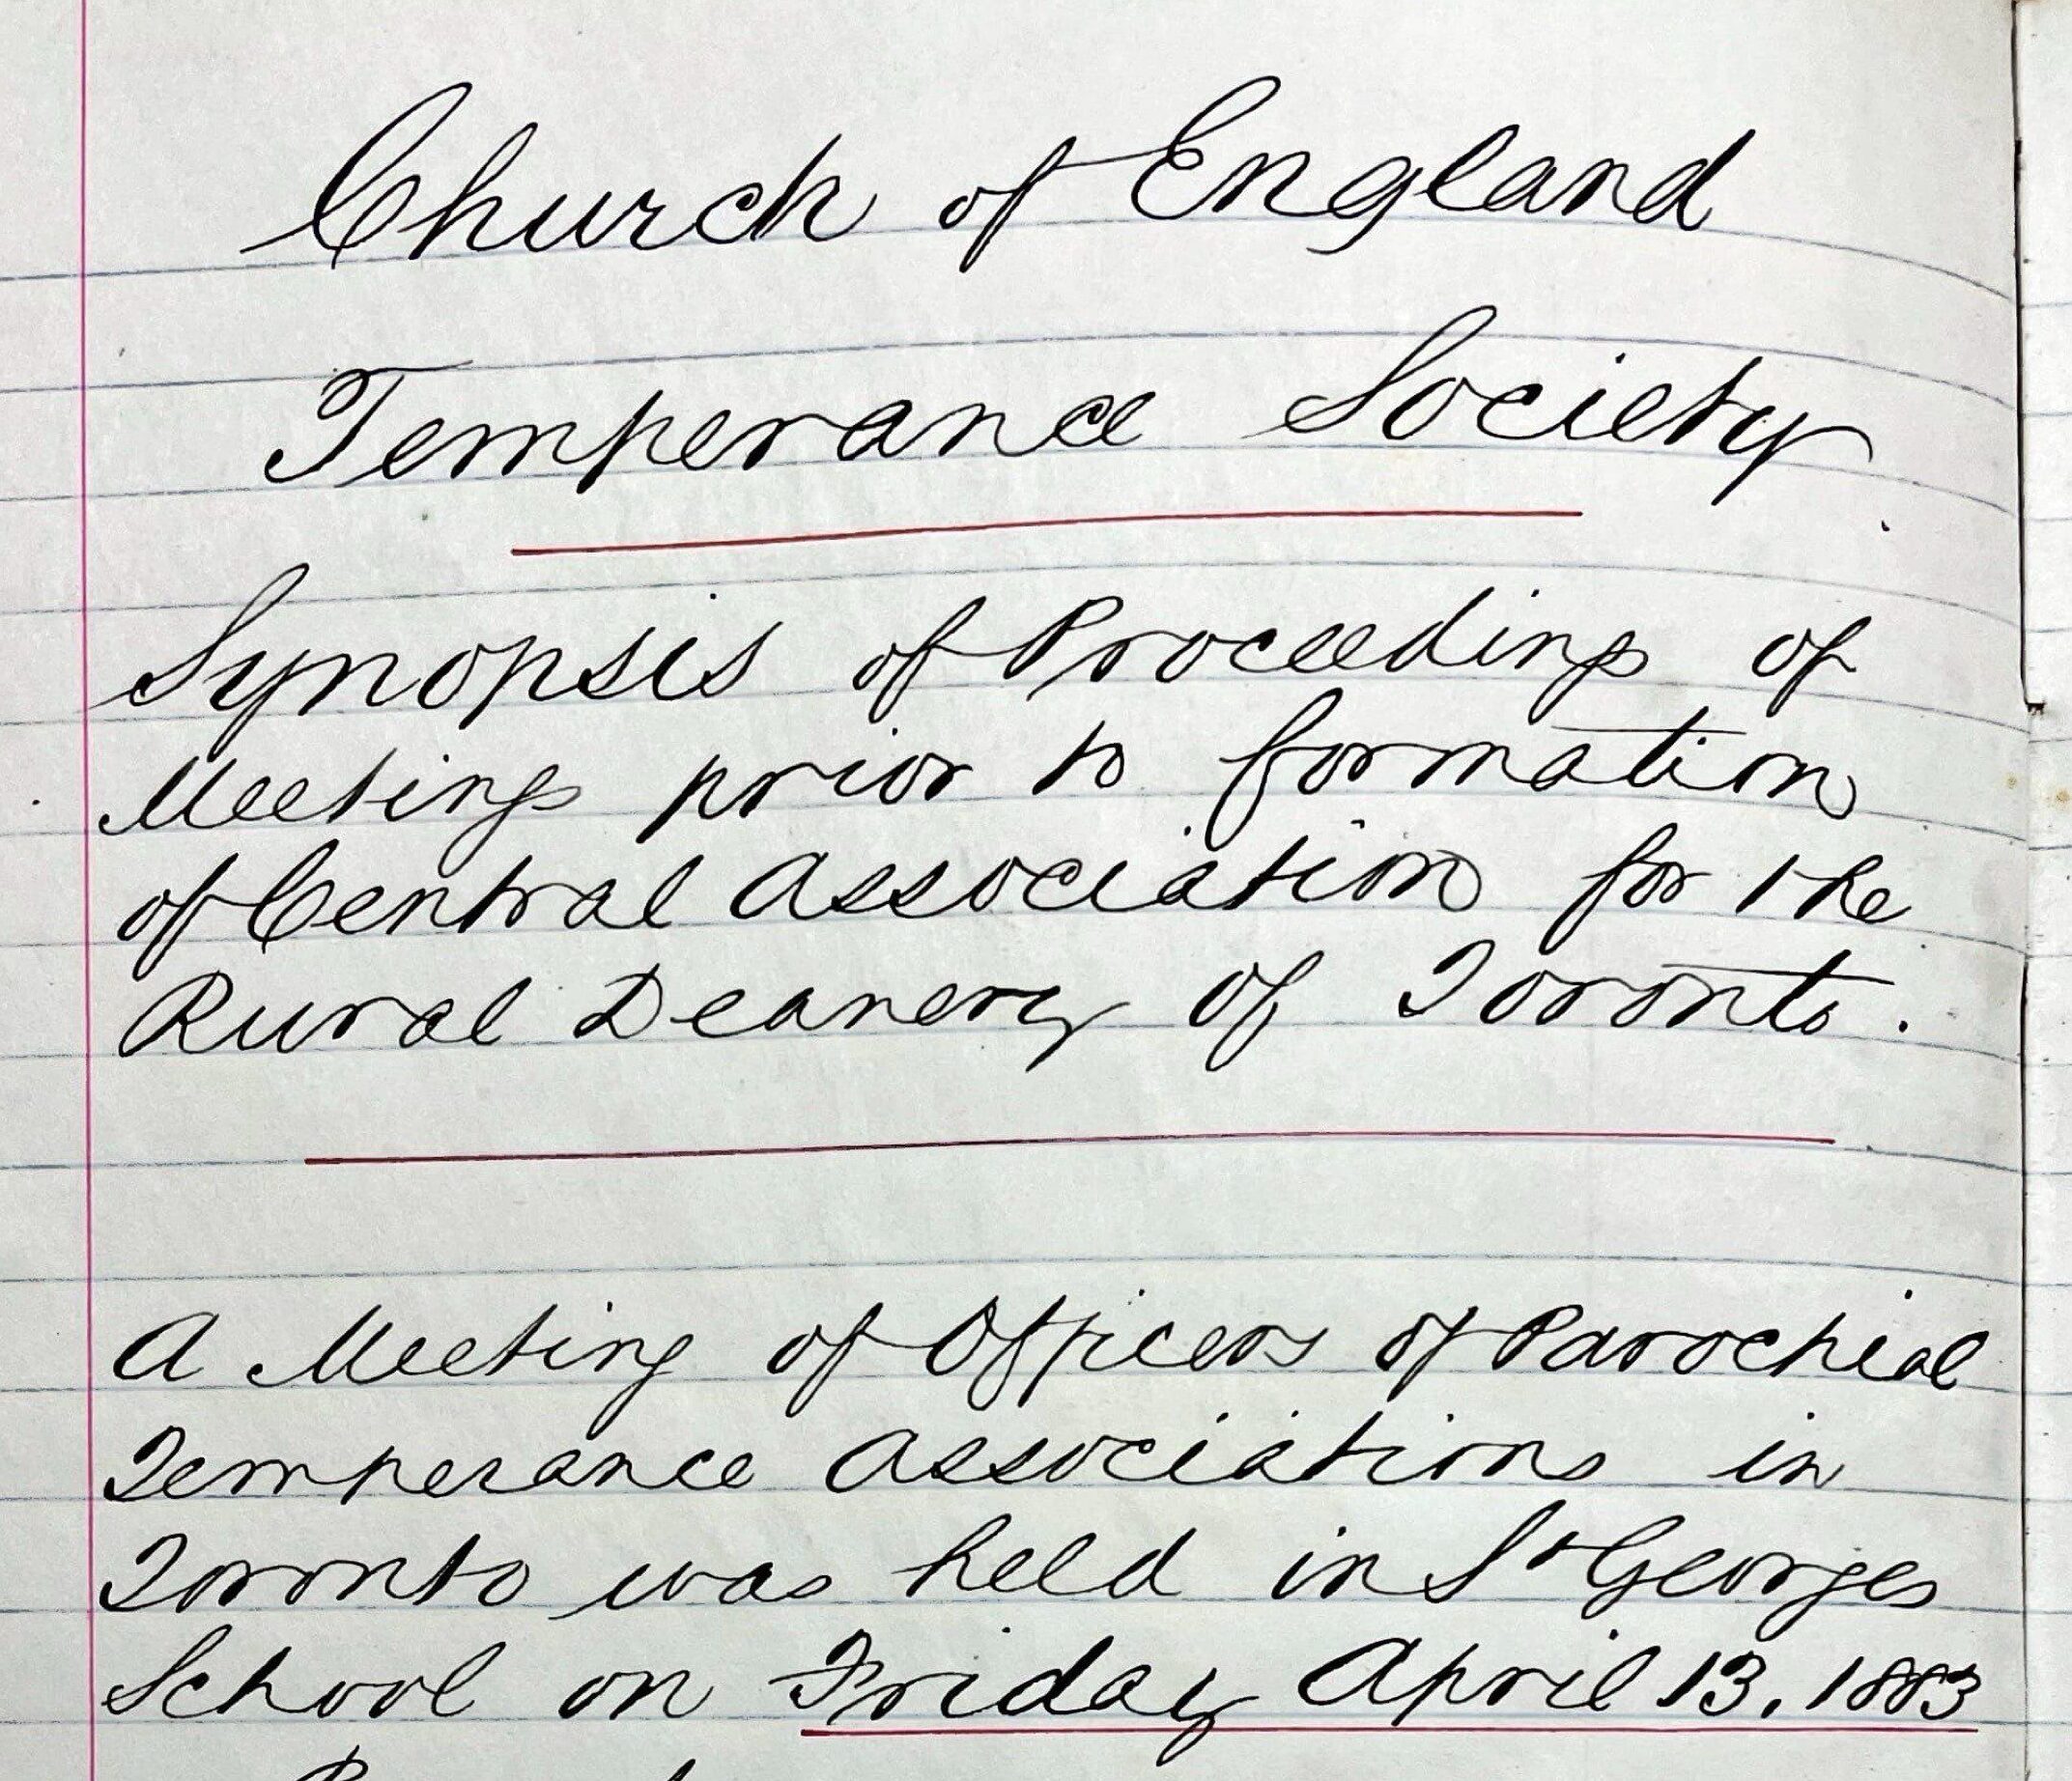 Church of England
Temperance Society
Synopsis of Proceedings of
Meetings prior to formation
of Central Association for the
Rural Deanery of Toronto.
A Meeting of Officers of Parochial
Temperance Associations in
Toronto was held in St Georges
School on Friday April 13, 1883